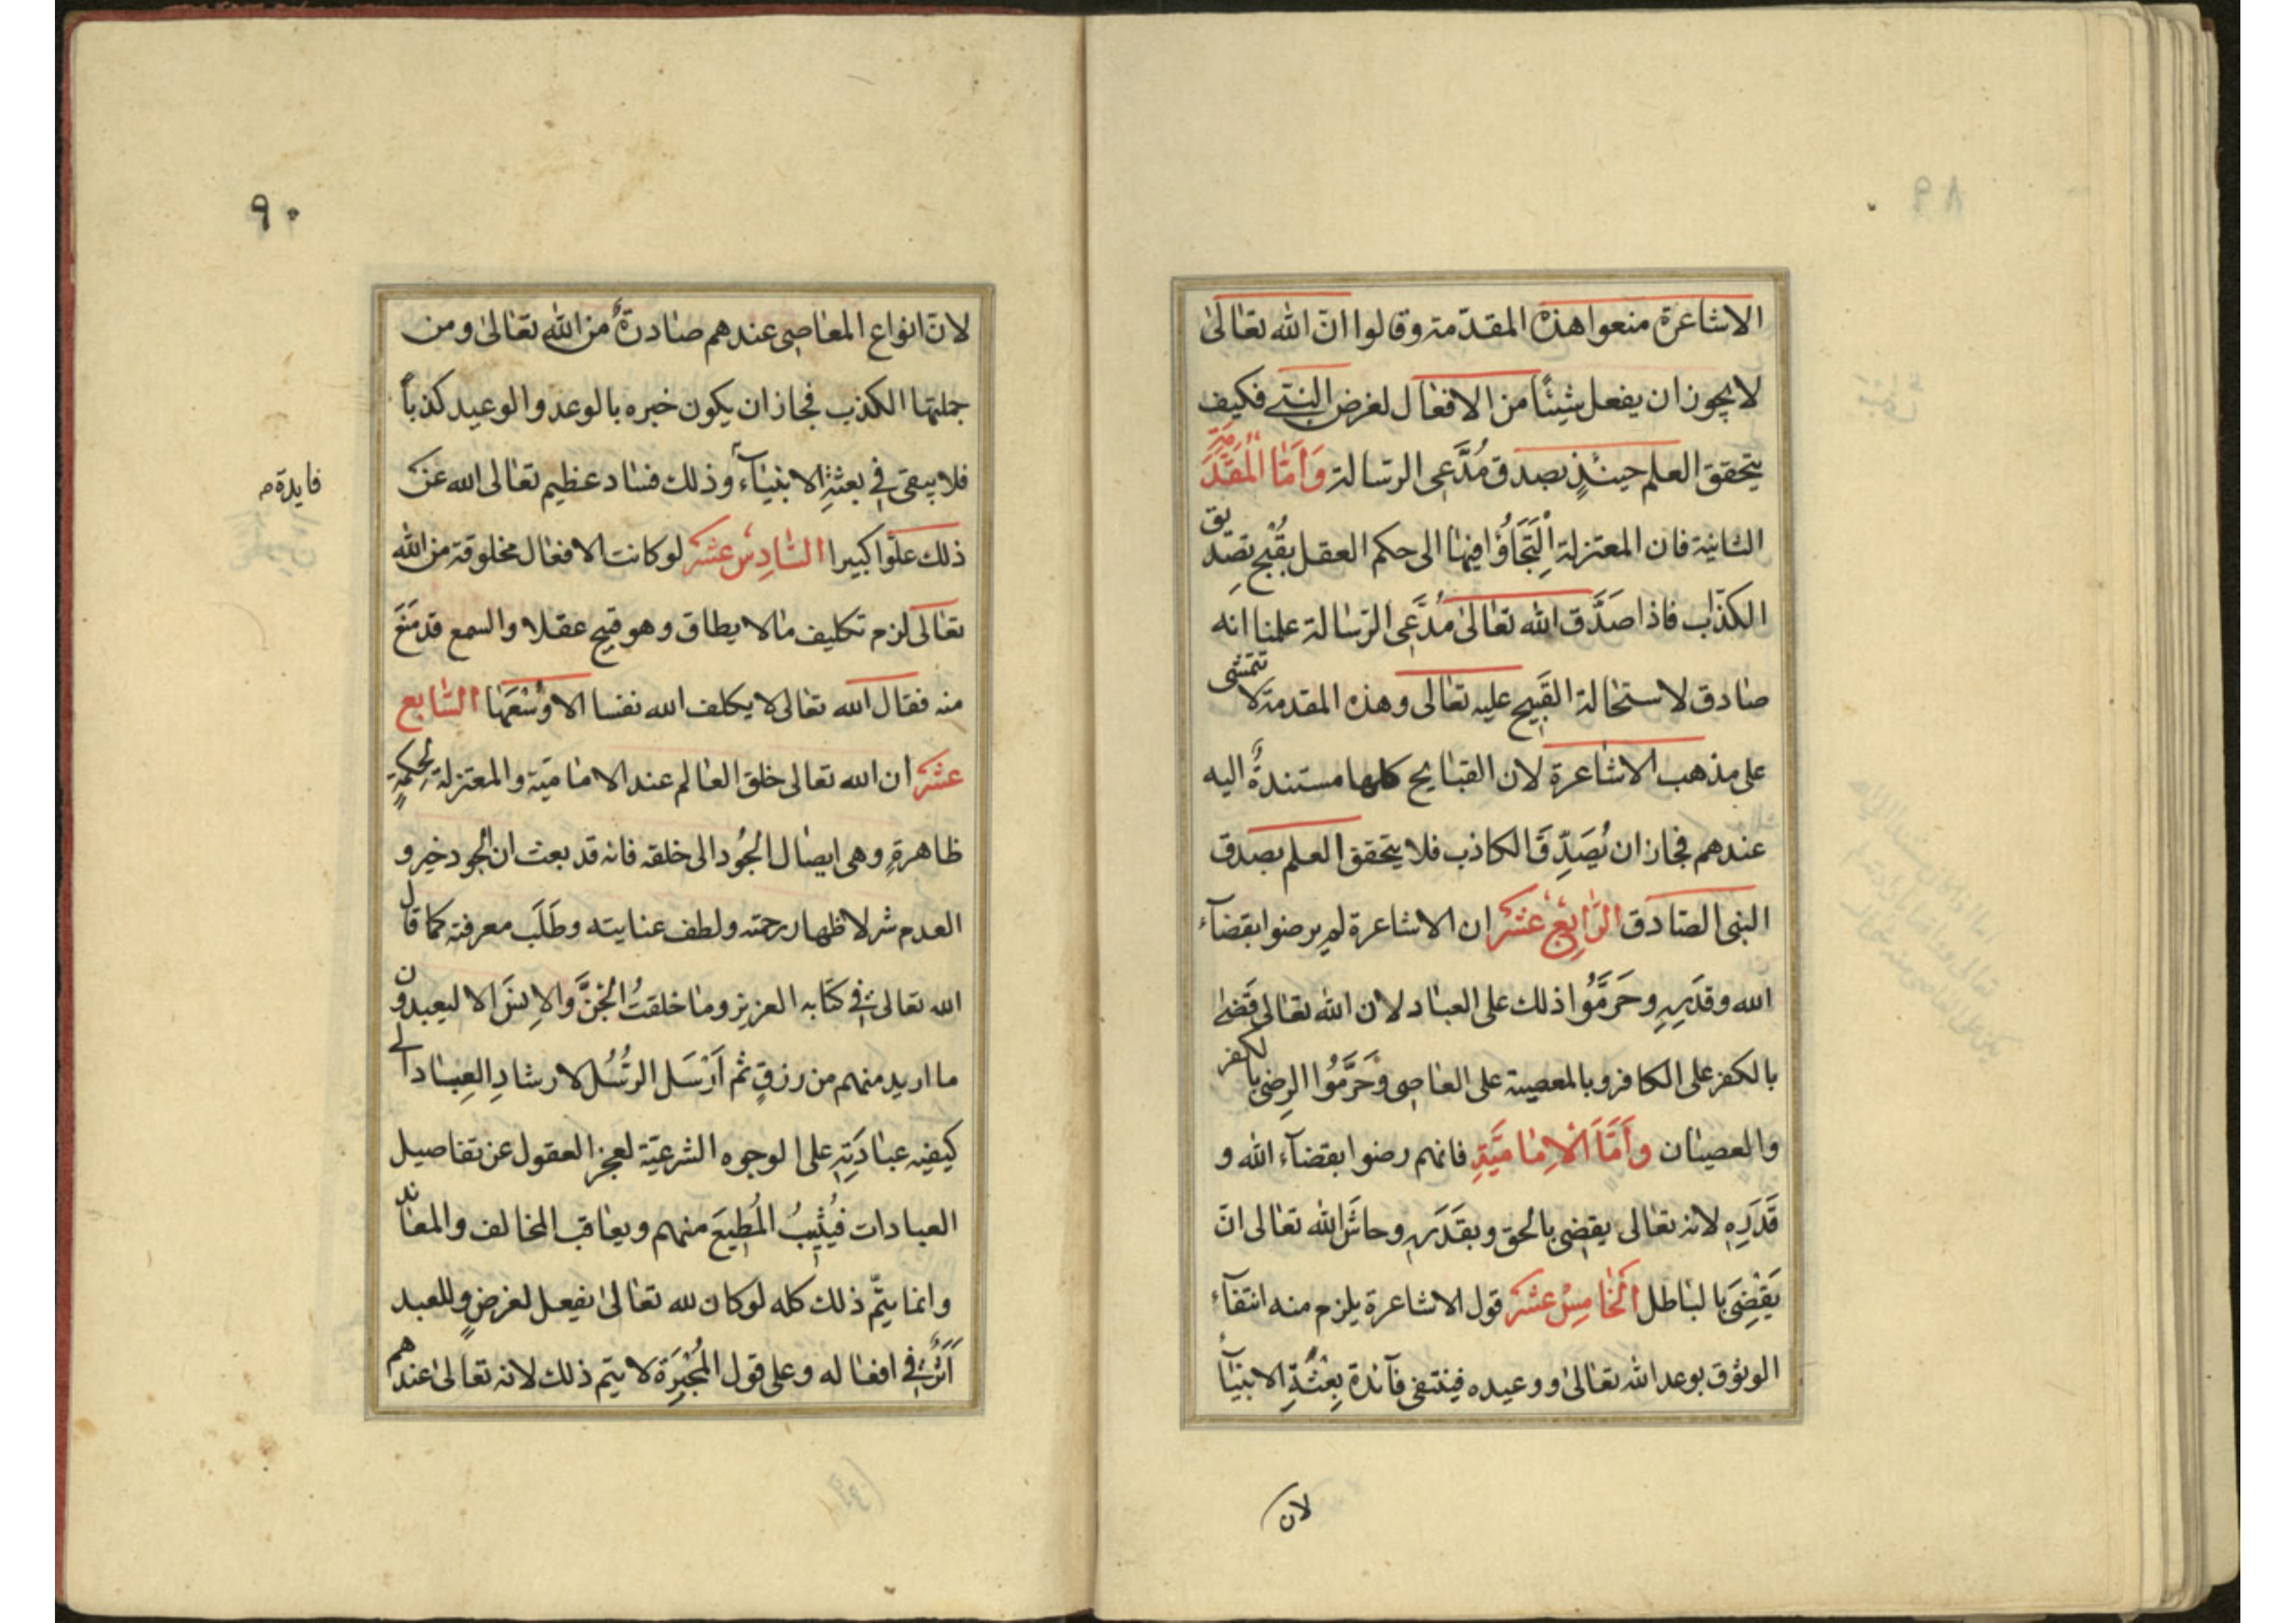 الاشاعرة منعوا هذه المقدّمة وقالوا انّ الله تعالىٰ
لا يجوز ان يفعل شيئًا من الافعال لغرض البتة فكيف
يتحقق العلم حينئذٍ بصدق مُدَّعِي الرسالة وَاَمَّا الْمُقَدَّمَةِ
الثانية فان المعتزلة اِلْتَجَاؤُا فيها الى حكم العقل بقُبْحِ تصْدِيق
الكذّاب فاذا صَدَّق الله تعالىٰ مُدَّعِي الرّسالة علمنا انه
صادق لاستحالة القَبِيح عليه تعالى وهذه المقدمة لا تتمشى
على مذهب الاشاعرة لان القبايح كلها مستندةٌ اليه
عندهم فجاز ان يُصَدِّقَ الكاذب فلا يتحقق العلم بصدق
النبى الصادق الرَّابِعَ عَشَرَ ان الاشاعرة لم يرضوا بقضآء
الله وقدَرِهِ وحَرَّمُوا ذلك على العباد لان الله تعالى قَضىٰ
بالكفر على الكافر وبالمعصية على العاصى وحَرَّمُوا الرضى بالكفر
والعصيان وأَمَّا الْاِمَامَيَّةِ فانهم رضوا بقضآء الله و
قَدَرِهِ لانه تعالى يقضى بالحق وبقَدَرِهِ وحاشَ الله تعالى انّ
يَقْضِىَ بالباطل الْخَامِسْ عَشَرَ قول الاشاعرة يلزم منه انتفآء
الوثوق بوعد الله تعالىٰ ووعيده فينتفى فآئدة بِعْثَةِ الانبيآء
لان
٩٠
لانّ انواع المعاصى عندهم صادرةٌ من الله تعالىٰ ومن
جملتها الكذب فجاز ان يكون خبره بالوعد والوعيد كذبًا
فلا يبقى فى بعثةِ الانبيآء وذلك فساد عظيم تعالى الله عن
فايدة
ذلك علوّا كبيرا السَّادِسْ عَشَرَ لو كانت الافعال مخلوقة من الله
تعالى لزم تكليف مالا يطاق وهو قبيح عقلا والسمع قد مَنَعَ
منه فقال الله تعالى لا يكلف الله نفسا الا وُسْعَهَا السَّابِع
عَشَرَ ان الله تعالى خلق العالم عند الاماميّة والمعتزلة لحِكمةٍ
ظاهرةٍ وهى ايصال الجُود الى خلقه فانه قد بعث ان الجود خير و
العدم شر لاظهار رحمته ولطف عنايته وطَلَب معرفته كما قال
الله تعالى فى كتابه العزيز وما خلقتُ الْجِنَّ والاِنسَ الا ليعبدون
ما اريد منهم من رزقٍ ثم اَرْسَل الرسُل لارشادِ العِباد الى
كيفيه عبادَتِهِ على الوجوه الشرعيّة لعجز العقول عن تفاصيل
العبادات فيُثِيبُ المُطِيعَ منهم ويعاقب المخالف والمعاند
وانما يتمّ ذلك كله لو كان لله تعالىٰ يفعل لغرضٍ وللعبد
اَثَرٌ فى افعاله وعلى قول المُجْبِرَة لا يتم ذلك لانه تعالىٰ عندهم